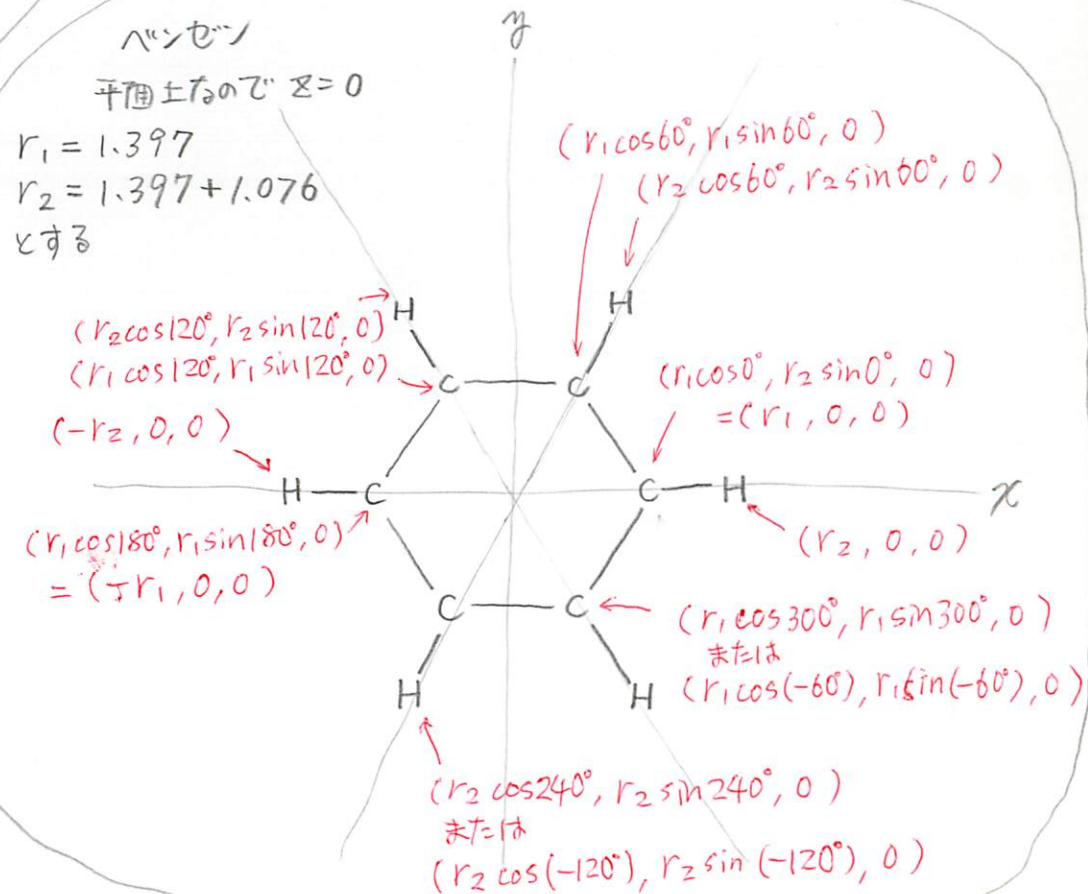 ベンゼン
平面上なので z=0
r₁ = 1.397
r₂ = 1.397+1.076
とする
y
(r₁cos60°, r₁sin60°, 0)
(r₂cos60°, r₂sin60°, 0)
H H
(r₂cos120°, r₂sin120°, 0)
(r₁cos120°, r₁sin120°, 0)
C C
(r₁cos0°, r₂sin0°, 0)
=(r₁, 0, 0)
(-r₂, 0, 0)
H C C H x
(r₁cos180°, r₁sin180°, 0)
= (-r₁, 0, 0)
(r₂, 0, 0)
C C
(r₁cos300°, r₁sin300°, 0)
または
(r₁cos(-60°), r₁sin(-60°), 0)
H H
(r₂cos240°, r₂sin240°, 0)
または
(r₂cos(-120°), r₂sin(-120°), 0)